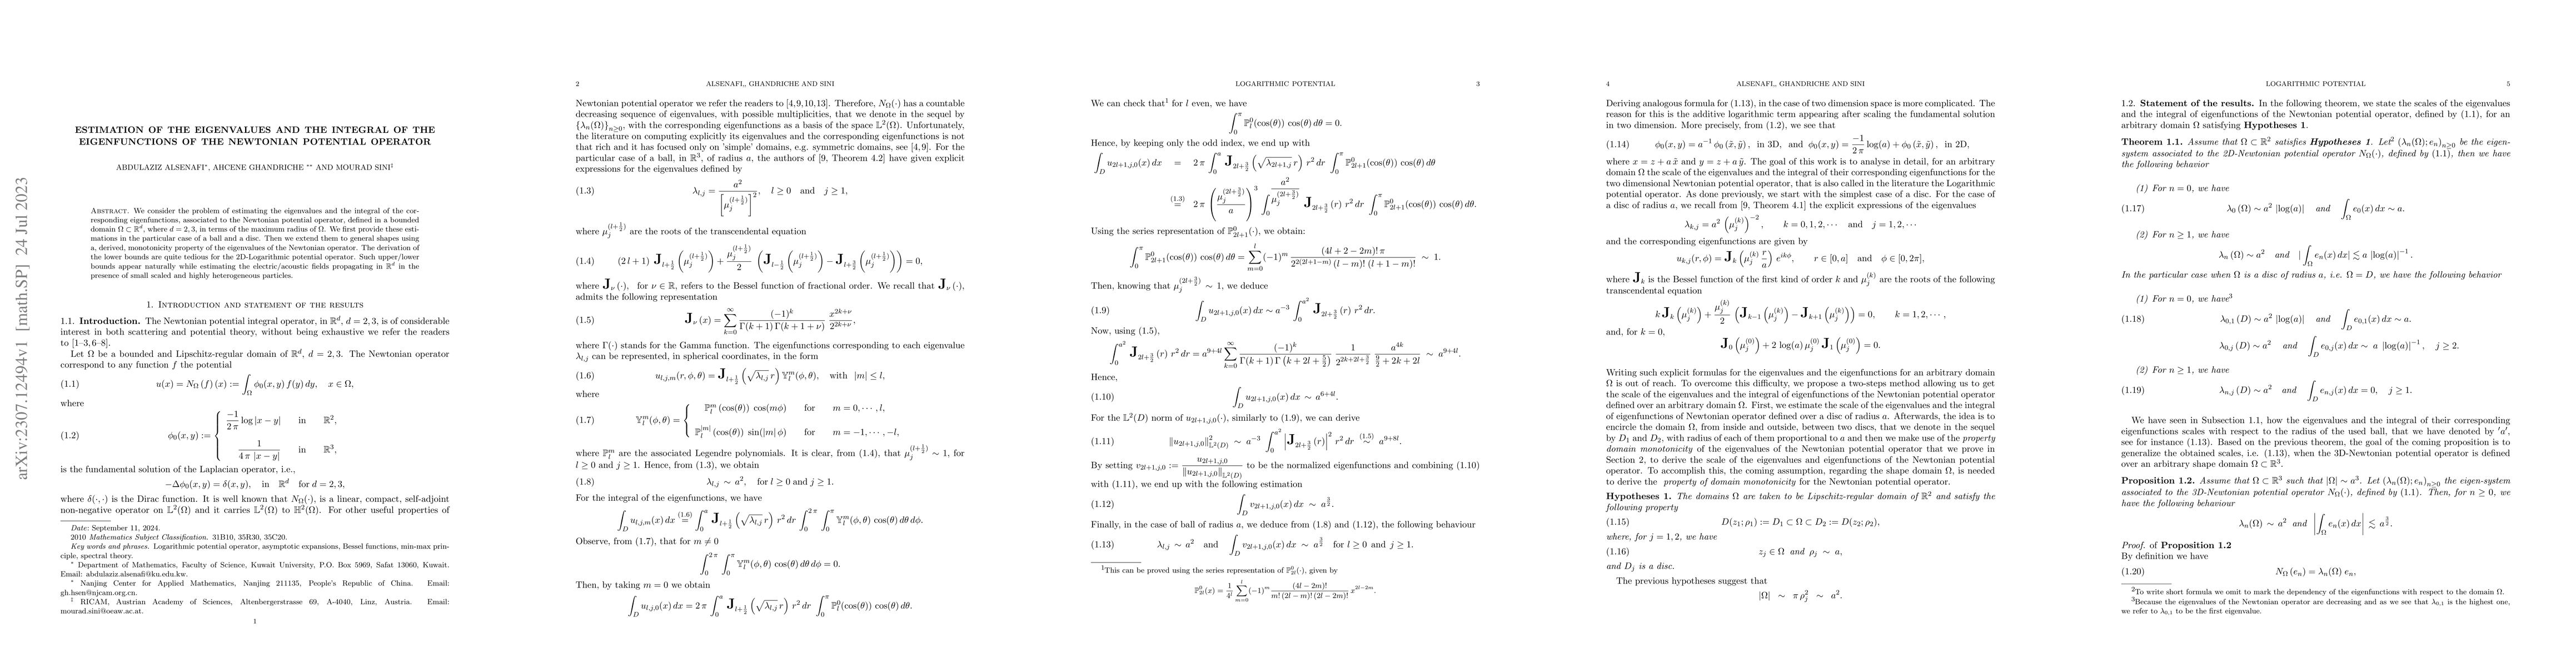 arXiv:2307.12494v1 [math.SP] 24 Jul 2023
ESTIMATION OF THE EIGENVALUES AND THE INTEGRAL OF THE
EIGENFUNCTIONS OF THE NEWTONIAN POTENTIAL OPERATOR
ABDULAZIZ ALSENAFI*, AHCENE GHANDRICHE ** AND MOURAD SINI‡
Abstract. We consider the problem of estimating the eigenvalues and the integral of the cor-
responding eigenfunctions, associated to the Newtonian potential operator, defined in a bounded
domain Ω ⊂ ℝ^d, where d = 2, 3, in terms of the maximum radius of Ω. We first provide these esti-
mations in the particular case of a ball and a disc. Then we extend them to general shapes using
a, derived, monotonicity property of the eigenvalues of the Newtonian operator. The derivation of
the lower bounds are quite tedious for the 2D-Logarithmic potential operator. Such upper/lower
bounds appear naturally while estimating the electric/acoustic fields propagating in ℝ^d in the
presence of small scaled and highly heterogeneous particles.
1. Introduction and statement of the results
1.1. Introduction. The Newtonian potential integral operator, in ℝ^d, d = 2, 3, is of considerable
interest in both scattering and potential theory, without being exhaustive we refer the readers
to [1–3,6–8].
Let Ω be a bounded and Lipschitz-regular domain of ℝ^d, d = 2, 3. The Newtonian operator
correspond to any function f the potential
(1.1) u(x) = N_Ω (f) (x) := ∫_Ω ϕ_0(x, y) f(y) dy, x ∈ Ω,
where
(1.2) ϕ_0(x, y) := { −1/(2 π) log |x − y| in ℝ^2,
1/(4 π |x − y|) in ℝ^3,
is the fundamental solution of the Laplacian operator, i.e.,
−Δϕ_0(x, y) = δ(x, y), in ℝ^d for d = 2, 3,
where δ(·, ·) is the Dirac function. It is well known that N_Ω(·), is a linear, compact, self-adjoint
non-negative operator on 𝕃^2(Ω) and it carries 𝕃^2(Ω) to ℍ^2(Ω). For other useful properties of
Date: September 11, 2024.
2010 Mathematics Subject Classification. 31B10, 35R30, 35C20.
Key words and phrases. Logarithmic potential operator, asymptotic expansions, Bessel functions, min-max prin-
ciple, spectral theory.
* Department of Mathematics, Faculty of Science, Kuwait University, P.O. Box 5969, Safat 13060, Kuwait.
Email: abdulaziz.alsenafi@ku.edu.kw.
* Nanjing Center for Applied Mathematics, Nanjing 211135, People's Republic of China. Email:
gh.hsen@njcam.org.cn.
‡ RICAM, Austrian Academy of Sciences, Altenbergerstrasse 69, A-4040, Linz, Austria. Email:
mourad.sini@oeaw.ac.at.
1
2 ALSENAFI,, GHANDRICHE AND SINI
Newtonian potential operator we refer the readers to [4,9,10,13]. Therefore, N_Ω(·) has a countable
decreasing sequence of eigenvalues, with possible multiplicities, that we denote in the sequel by
{λ_n(Ω)}_{n≥0}, with the corresponding eigenfunctions as a basis of the space 𝕃^2(Ω). Unfortunately,
the literature on computing explicitly its eigenvalues and the corresponding eigenfunctions is not
that rich and it has focused only on 'simple' domains, e.g. symmetric domains, see [4, 9]. For the
particular case of a ball, in ℝ^3, of radius a, the authors of [9, Theorem 4.2] have given explicit
expressions for the eigenvalues defined by
(1.3) λ_{l,j} = a^2 / [μ_j^{(l+1/2)}]^2, l ≥ 0 and j ≥ 1,
where μ_j^{(l+1/2)} are the roots of the transcendental equation
(1.4) (2 l + 1) J_{l+1/2} (μ_j^{(l+1/2)}) + μ_j^{(l+1/2)}/2 (J_{l−1/2} (μ_j^{(l+1/2)}) − J_{l+3/2} (μ_j^{(l+1/2)})) = 0,
where J_ν (·), for ν ∈ ℝ, refers to the Bessel function of fractional order. We recall that J_ν (·),
admits the following representation
(1.5) J_ν (x) = ∑_{k=0}^∞ (−1)^k / (Γ(k + 1) Γ(k + 1 + ν)) x^{2k+ν} / 2^{2k+ν},
where Γ(·) stands for the Gamma function. The eigenfunctions corresponding to each eigenvalue
λ_{l,j} can be represented, in spherical coordinates, in the form
(1.6) u_{l,j,m}(r, ϕ, θ) = J_{l+1/2} (√λ_{l,j} r) 𝕐_l^m(ϕ, θ), with |m| ≤ l,
where
(1.7) 𝕐_l^m(ϕ, θ) = { ℙ_l^m (cos(θ)) cos(mϕ) for m = 0, ··· , l,
ℙ_l^{|m|} (cos(θ)) sin(|m| ϕ) for m = −1, ··· , −l,
where ℙ_l^m are the associated Legendre polynomials. It is clear, from (1.4), that μ_j^{(l+1/2)} ∼ 1, for
l ≥ 0 and j ≥ 1. Hence, from (1.3), we obtain
(1.8) λ_{l,j} ∼ a^2, for l ≥ 0 and j ≥ 1.
For the integral of the eigenfunctions, we have
∫_D u_{l,j,m}(x) dx (1.6)= ∫_0^a J_{l+1/2} (√λ_{l,j} r) r^2 dr ∫_0^{2π} ∫_0^π 𝕐_l^m(ϕ, θ) cos(θ) dθ dϕ.
Observe, from (1.7), that for m ≠ 0
∫_0^{2π} ∫_0^π 𝕐_l^m(ϕ, θ) cos(θ) dθ dϕ = 0.
Then, by taking m = 0 we obtain
∫_D u_{l,j,0}(x) dx = 2 π ∫_0^a J_{l+1/2} (√λ_{l,j} r) r^2 dr ∫_0^π ℙ_l^0(cos(θ)) cos(θ) dθ.
LOGARITHMIC POTENTIAL 3
We can check that^1 for l even, we have
∫_0^π ℙ_l^0(cos(θ)) cos(θ) dθ = 0.
Hence, by keeping only the odd index, we end up with
∫_D u_{2l+1,j,0}(x) dx = 2 π ∫_0^a J_{2l+3/2} (√λ_{2l+1,j} r) r^2 dr ∫_0^π ℙ_{2l+1}^0(cos(θ)) cos(θ) dθ
(1.3)= 2 π (μ_j^{(2l+3/2)} / a)^3 ∫_0^{a^2/μ_j^{(2l+3/2)}} J_{2l+3/2} (r) r^2 dr ∫_0^π ℙ_{2l+1}^0(cos(θ)) cos(θ) dθ.
Using the series representation of ℙ_{2l+1}^0(·), we obtain:
∫_0^π ℙ_{2l+1}^0(cos(θ)) cos(θ) dθ = ∑_{m=0}^l (−1)^m (4l + 2 − 2m)! π / (2^{2(2l+1−m)} (l − m)! (l + 1 − m)!) ∼ 1.
Then, knowing that μ_j^{(2l+3/2)} ∼ 1, we deduce
(1.9) ∫_D u_{2l+1,j,0}(x) dx ∼ a^{−3} ∫_0^{a^2} J_{2l+3/2} (r) r^2 dr.
Now, using (1.5),
∫_0^{a^2} J_{2l+3/2} (r) r^2 dr = a^{9+4l} ∑_{k=0}^∞ (−1)^k / (Γ(k + 1) Γ (k + 2l + 5/2)) 1 / 2^{2k+2l+3/2} a^{4k} / (9/2 + 2k + 2l) ∼ a^{9+4l}.
Hence,
(1.10) ∫_D u_{2l+1,j,0}(x) dx ∼ a^{6+4l}.
For the 𝕃^2(D) norm of u_{2l+1,j,0}(·), similarly to (1.9), we can derive
(1.11) ‖u_{2l+1,j,0}‖^2_{𝕃^2(D)} ∼ a^{−3} ∫_0^{a^2} |J_{2l+3/2} (r)|^2 r^2 dr (1.5)∼ a^{9+8l}.
By setting v_{2l+1,j,0} := u_{2l+1,j,0} / ‖u_{2l+1,j,0}‖_{𝕃^2(D)} to be the normalized eigenfunctions and combining (1.10)
with (1.11), we end up with the following estimation
(1.12) ∫_D v_{2l+1,j,0}(x) dx ∼ a^{3/2}.
Finally, in the case of ball of radius a, we deduce from (1.8) and (1.12), the following behaviour
(1.13) λ_{l,j} ∼ a^2 and ∫_D v_{2l+1,j,0}(x) dx ∼ a^{3/2} for l ≥ 0 and j ≥ 1.
^1This can be proved using the series representation of ℙ_{2l}^0(·), given by
ℙ_{2l}^0(x) = 1/4^l ∑_{m=0}^l (−1)^m (4l − 2m)! / (m! (2l − m)! (2l − 2m)!) x^{2l−2m}.
4 ALSENAFI,, GHANDRICHE AND SINI
Deriving analogous formula for (1.13), in the case of two dimension space is more complicated. The
reason for this is the additive logarithmic term appearing after scaling the fundamental solution
in two dimension. More precisely, from (1.2), we see that
(1.14) ϕ_0(x, y) = a^{−1} ϕ_0 (x̃, ỹ), in 3D, and ϕ_0(x, y) = −1/(2 π) log(a) + ϕ_0 (x̃, ỹ), in 2D,
where x = z + a x̃ and y = z + a ỹ. The goal of this work is to analyse in detail, for an arbitrary
domain Ω the scale of the eigenvalues and the integral of their corresponding eigenfunctions for the
two dimensional Newtonian potential operator, that is also called in the literature the Logarithmic
potential operator. As done previously, we start with the simplest case of a disc. For the case of
a disc of radius a, we recall from [9, Theorem 4.1] the explicit expressions of the eigenvalues
λ_{k,j} = a^2 (μ_j^{(k)})^{−2}, k = 0, 1, 2, ··· and j = 1, 2, ···
and the corresponding eigenfunctions are given by
u_{k,j}(r, ϕ) = J_k (μ_j^{(k)} r/a) e^{ikϕ}, r ∈ [0, a] and ϕ ∈ [0, 2π],
where J_k is the Bessel function of the first kind of order k and μ_j^{(k)} are the roots of the following
transcendental equation
k J_k (μ_j^{(k)}) + μ_j^{(k)}/2 (J_{k−1} (μ_j^{(k)}) − J_{k+1} (μ_j^{(k)})) = 0, k = 1, 2, ··· ,
and, for k = 0,
J_0 (μ_j^{(0)}) + 2 log(a) μ_j^{(0)} J_1 (μ_j^{(0)}) = 0.
Writing such explicit formulas for the eigenvalues and the eigenfunctions for an arbitrary domain
Ω is out of reach. To overcome this difficulty, we propose a two-steps method allowing us to get
the scale of the eigenvalues and the integral of eigenfunctions of the Newtonian potential operator
defined over an arbitrary domain Ω. First, we estimate the scale of the eigenvalues and the integral
of eigenfunctions of Newtonian operator defined over a disc of radius a. Afterwards, the idea is to
encircle the domain Ω, from inside and outside, between two discs, that we denote in the sequel
by D_1 and D_2, with radius of each of them proportional to a and then we make use of the property
domain monotonicity of the eigenvalues of the Newtonian potential operator that we prove in
Section 2, to derive the scale of the eigenvalues and eigenfunctions of the Newtonian potential
operator. To accomplish this, the coming assumption, regarding the shape domain Ω, is needed
to derive the property of domain monotonicity for the Newtonian potential operator.
Hypotheses 1. The domains Ω are taken to be Lipschitz-regular domain of ℝ^2 and satisfy the
following property
(1.15) D(z_1; ρ_1) := D_1 ⊂ Ω ⊂ D_2 := D(z_2; ρ_2),
where, for j = 1, 2, we have
(1.16) z_j ∈ Ω and ρ_j ∼ a,
and D_j is a disc.
The previous hypotheses suggest that
|Ω| ∼ π ρ_j^2 ∼ a^2.
LOGARITHMIC POTENTIAL 5
1.2. Statement of the results. In the following theorem, we state the scales of the eigenvalues
and the integral of eigenfunctions of the Newtonian operator, defined by (1.1), for an
arbitrary domain Ω satisfying Hypotheses 1.
Theorem 1.1. Assume that Ω ⊂ ℝ^2 satisfies Hypotheses 1. Let^2 (λ_n(Ω); e_n)_{n≥0} be the eigen-
system associated to the 2D-Newtonian potential operator N_Ω(·), defined by (1.1), then we have
the following behavior
(1) For n = 0, we have
(1.17) λ_0 (Ω) ∼ a^2 |log(a)| and ∫_Ω e_0(x) dx ∼ a.
(2) For n ≥ 1, we have
λ_n (Ω) ∼ a^2 and | ∫_Ω e_n(x) dx| ≲ a |log(a)|^{−1} .
In the particular case when Ω is a disc of radius a, i.e. Ω = D, we have the following behavior
(1) For n = 0, we have^3
(1.18) λ_{0,1} (D) ∼ a^2 |log(a)| and ∫_D e_{0,1}(x) dx ∼ a.
λ_{0,j} (D) ∼ a^2 and ∫_D e_{0,j}(x) dx ∼ a |log(a)|^{−1} , j ≥ 2.
(2) For n ≥ 1, we have
(1.19) λ_{n,j} (D) ∼ a^2 and ∫_D e_{n,j}(x) dx = 0, j ≥ 1.
We have seen in Subsection 1.1, how the eigenvalues and the integral of their corresponding
eigenfunctions scales with respect to the radius of the used ball, that we have denoted by 'a',
see for instance (1.13). Based on the previous theorem, the goal of the coming proposition is to
generalize the obtained scales, i.e. (1.13), when the 3D-Newtonian potential operator is defined
over an arbitrary shape domain Ω ⊂ ℝ^3.
Proposition 1.2. Assume that Ω ⊂ ℝ^3 such that |Ω| ∼ a^3. Let (λ_n(Ω); e_n)_{n≥0} the eigen-system
associated to the 3D-Newtonian potential operator N_Ω(·), defined by (1.1). Then, for n ≥ 0, we
have the following behaviour
λ_n(Ω) ∼ a^2 and |∫_Ω e_n(x) dx| ≲ a^{3/2}.
Proof. of Proposition 1.2
By definition we have
(1.20) N_Ω (e_n) = λ_n(Ω) e_n,
^2To write short formula we omit to mark the dependency of the eigenfunctions with respect to the domain Ω.
^3Because the eigenvalues of the Newtonian operator are decreasing and as we see that λ_{0,1} is the highest one,
we refer to λ_{0,1} to be the first eigenvalue.